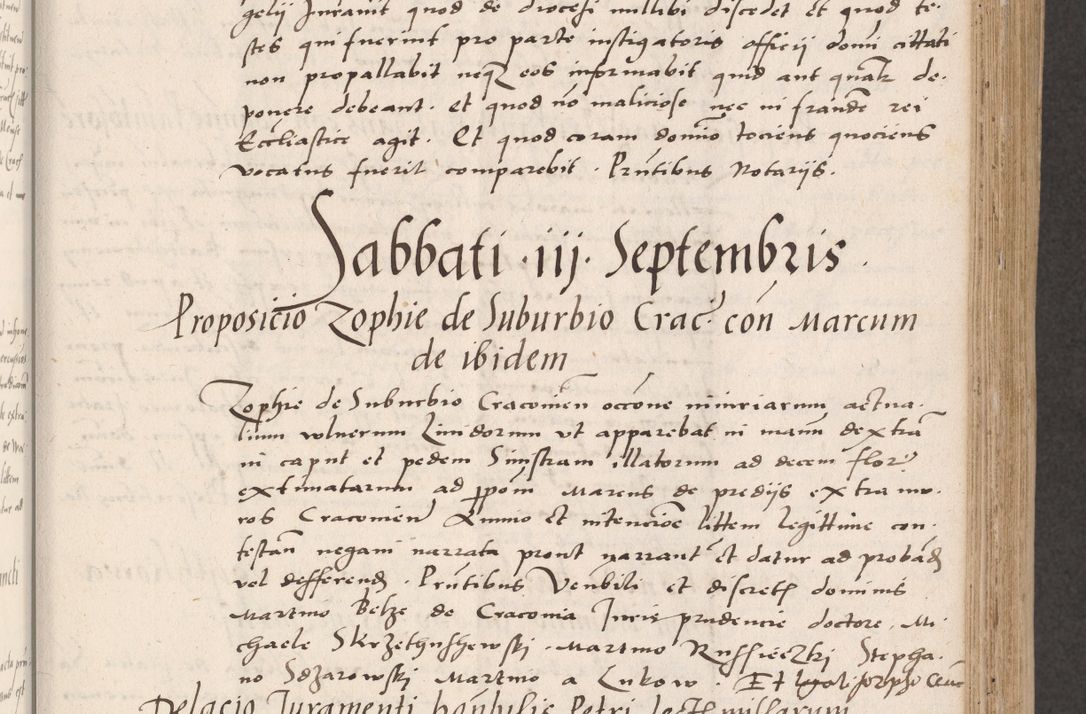 gelij Juravit quod de diocesi nullibi discedet et quod te-
stes qui fuerint pro parte instigatoris officij domi cittati
non propallabit neqz eos informabit quid aut qualr de-
ponere debeant. et quod nō maliciose nec in fraudē rei
Eccliastice agit. Et quod coram domīo tociens quociens
vocatus fuerit comparebit. Pñtibus Notarijs.
Sabbati .iij. Septembris.
Proposicio Zophie de Suburbio Crac. con Marcum
de ibidem
Zophie de Suburbio Cracouien occōne iniuriarum actua-
lium wlnerum Liuidorum vt apparebat in manū dextrā
in caput et pedem Sinistram illatorum ad decem flor
extimatarum ad ppoīm Marcus de predijs extra mu-
ros Cracouien Animo et intencioe littem legittime con-
testan negaui narrata prout narrant et datur ad proband
vel defferend. Pñtibus Venbili et discret dominis
Martino Belze de Cracouia Juris prudencie doctore, Mi-
chaele Skrzethushewski. Martino Russieczki Stepha-
no Sdzarowski Martino a Lukow. Et
Delacio Juramenti Petri